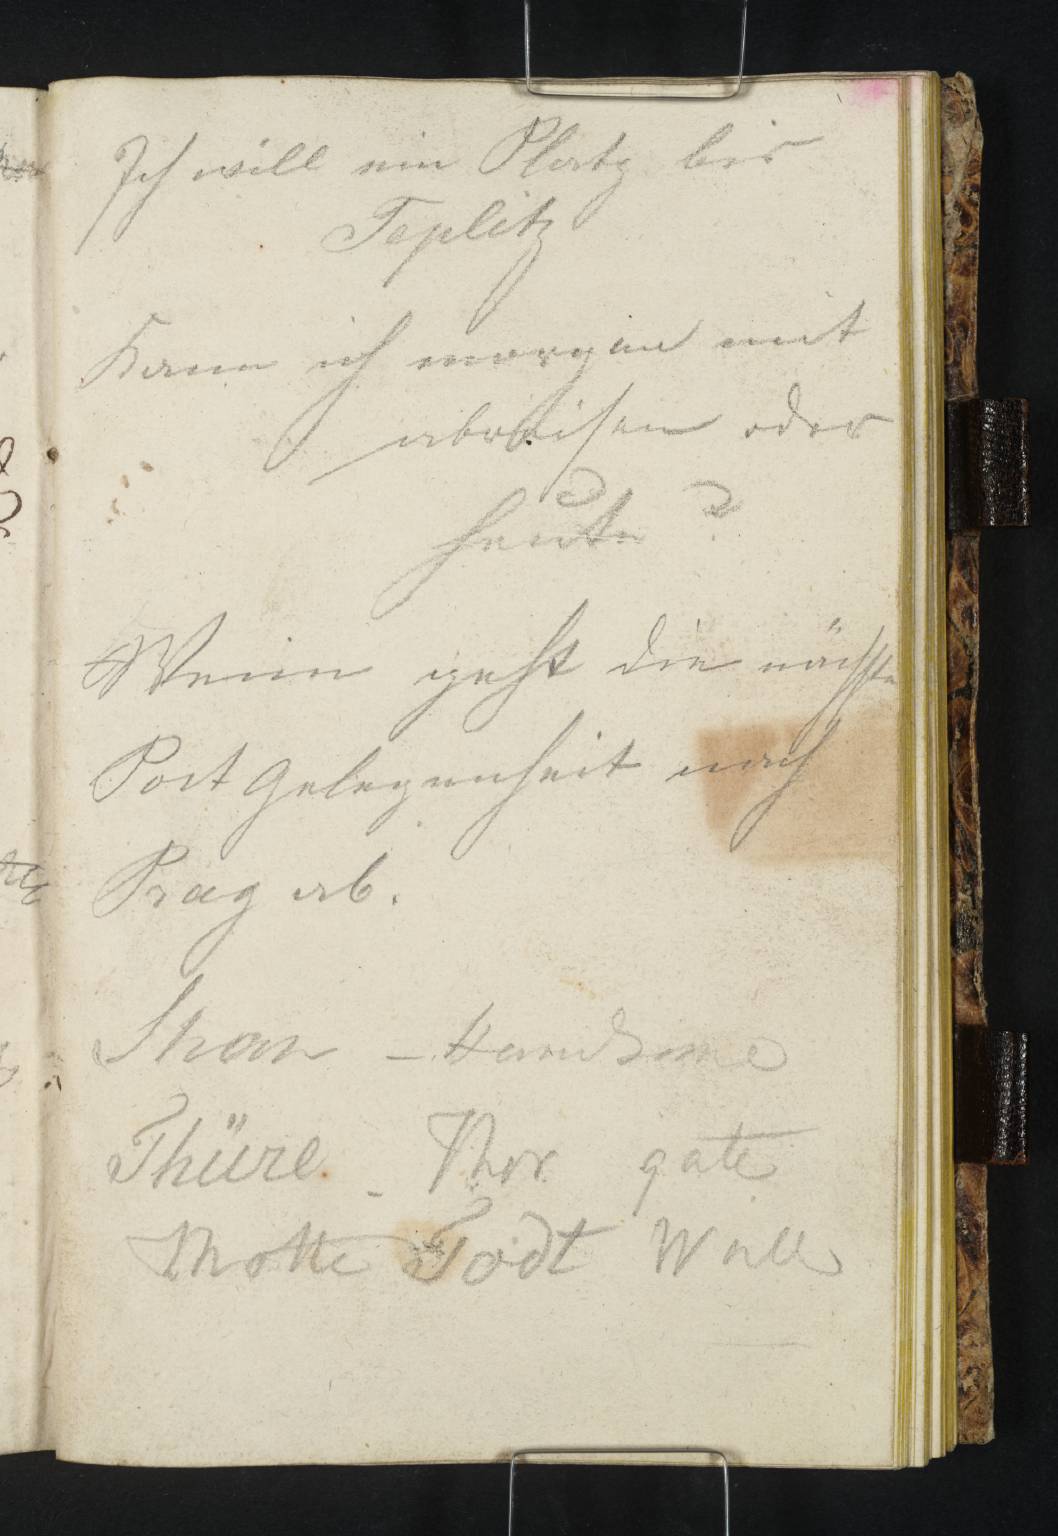 Ich will ein Platz bis
Teplitz
Kann ich morgen mit
abreisen oder
heute?
Wenn geht die nächste
Post Gelegenheit nach
Prag ab.
– Handsome
Thüre – Thor gate
Todt Wall